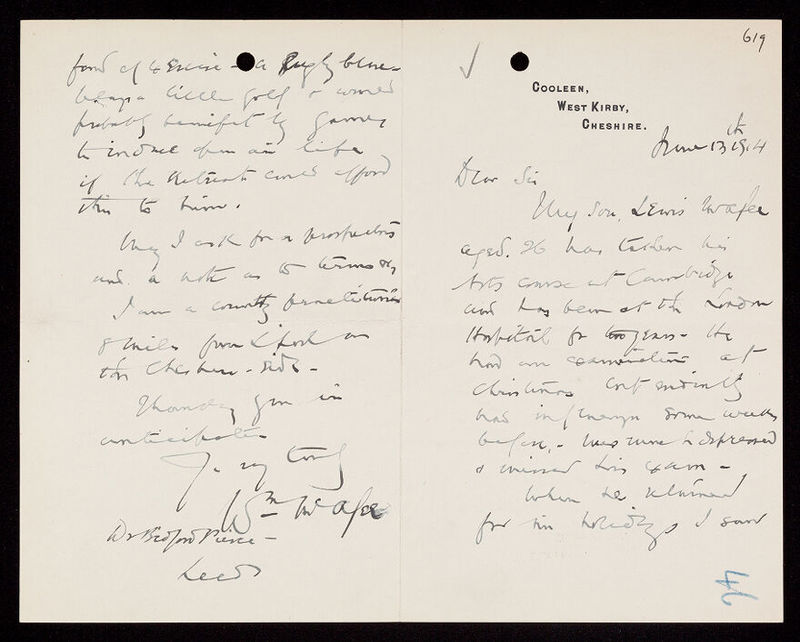 619
COOLEEN,
WEST KIRBY,
CHESHIRE.
June 13th 1914
Dear Sir
My son, Lewis McAfee
aged. 26 has taken his
Arts course at Cambridge
and has been at the London
Hospital for two years - He
had an examination at
Christmas but evidently
had influenza some weeks
before, - was much depressed
& missed his exam -
When he returned
for his holidays I saw
fond of exercise - a Rugby blue -
plays a little golf &
probably benefit by games
to induce open air life
if the Retreat could afford
this to him.
May I ask for a prospectus
and a note as to terms &c
I am a country practitioner
8 miles from L'pool on
the Cheshire - side -
Thanking you in
anticipation
Yrs truly
Wm McAfee
Dr Bedford Pierce -
Leeds